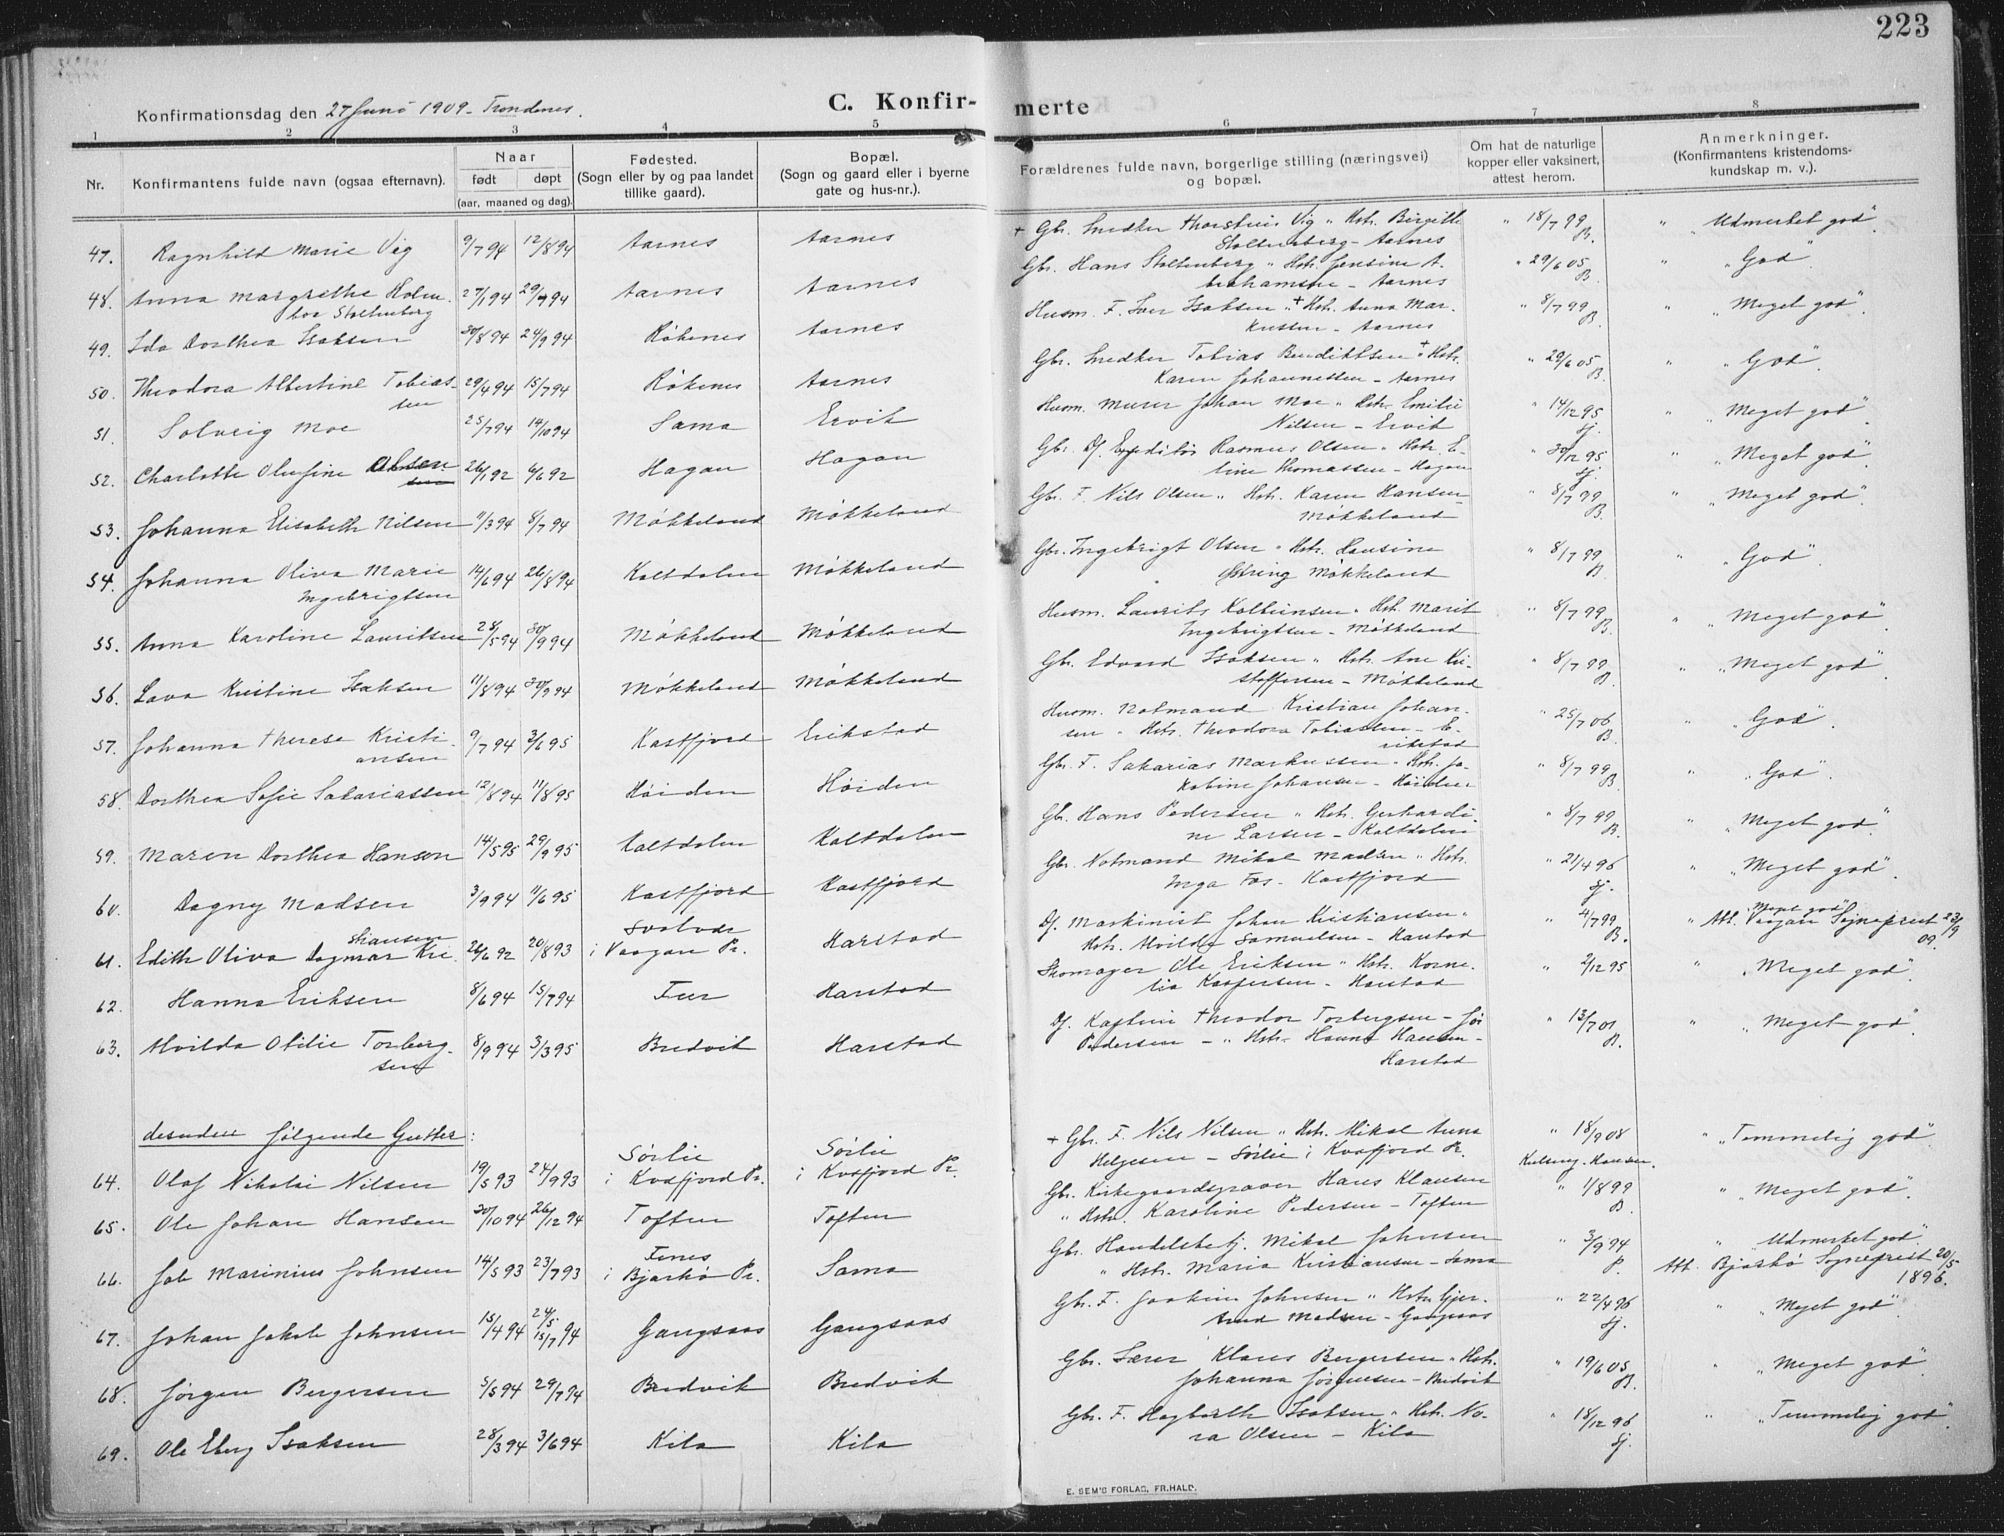 223
Konfirmationsdag den 27 Juni 1909 - Trondenes.
C. Konfir- merte
1 2 3 4 5 6 7 8
Nr.
Konfirmantens fulde navn (ogsaa efternavn).
Naar
født døpt
(aar, maaned og dag).
Fødested.
(Sogn eller by og paa landet
tillike gaard).
Bopæl.
(Sogn og gaard eller i byerne
gate og hus-nr.).
Forældrenes fulde navn, borgerlige stilling (næringsvei)
og bopæl.
Om hat de naturlige
kopper eller vaksinert,
attest herom.
Anmerkninger.
(Konfirmantens kristendoms-
kundskap m. v.).
47. Ragnhild Marie Vig 9/7 94 12/8 94 Aarnes Aarnes + Gbr. Snedker Thorstein Vig " Hstr. Birgitte " 18/7 99 " "Udmerket god".
Stoltenberg - Aarnes B.
48. Anna Margrethe Holm- 27/1 94 29/4 94 Aarnes Aarnes Gbr. Hans Stoltenberg " Hstr. Jensine A- " 29/6 05 " "God".
boe Stoltenberg brahamsen - Aarnes B
49. Ida Dorthea Isaksen 30/8 94 24/9 94 Røkenes Aarnes Husm. F. Iver Isaksen " + Hstr. Anna Mar- " 8/7 99 " "Meget god".
kussen - Aarnes B.
50. Theodora Albertine Tobias- 29/4 94 15/7 94 Røkenes Aarnes Gbr. Snedker Tobias Bendiktsen " + Hstr. " 29/6 05 " "God".
sen Karen Johannessen - Aarnes B.
51. Solveig Moe 25/7 94 14/10 94 Sama Ervik Husm. Murer Johan Moe " Hstr. Emilie " 14/12 95 " "Meget god".
Nilsen - Ervik Sj.
52. Charlotte Olufine Olsen 26/1 92 6/6 92 Hagan Hagan Gbr. Df. Expeditør Rasmus Olsen " Hstr. E- " 30/12 95 " "Meget god".
line Thomassen - Hagan Sj.
53. Johanna Elisabeth Nilsen 11/3 94 8/7 94 Møkkeland Møkkeland Gbr. F. Nils Olsen " Hstr. Karen Hansen - " 8/7 99 " "Meget god".
Møkkeland B.
54. Johanna Oliva Marie 14/6 94 26/8 94 Kaltdalen Møkkeland Gbr. Ingebrigt Olsen " Hstr. Hansine " 8/7 99 " "God".
Ingebrigtsen Møkkeland B
55. Anna Karoline Lauritsen 28/5 94 30/9 94 Møkkeland Møkkeland Husm. Laurits Kolbeinsen " Hstr. Marit " 8/7 99 " "Meget god".
Ingebrigtsen - Møkkeland B.
56. Lava Kristine Isaksen 11/8 94 30/9 94 Møkkeland Møkkeland Gbr. Edvard Isaksen " Hstr. Ane Kri- " 8/7 99 " "Meget god".
stoffersen - Møkkeland B.
57. Johanna Therese Kristi- 9/7 94 3/6 95 Kastfjord Erikstad Husm. Notmand Kristian Johan- " 25/7 06 " "God".
ansen sen " Hstr. Theodora Tobiassen - E- B.
rikstad
58. Dorthea Sofie Sakariassen 12/8 94 11/8 95 Høiden Høiden Gbr. F. Sakarias Markussen " Hstr. Ja- " 8/7 99 " "God".
kobine Johansen - Høiden B
59. Maren Dorthea Hansen 14/5 95 29/9 95 Kaltdalen Kaltdalen Gbr. Hans Pedersen " Hstr. Gerhardi- " 8/7 99 " "Meget god".
ne Larsen - Kaltdalen B.
60. Dagny Madsen 3/9 94 11/6 95 Kastfjord Kastfjord Gbr. Notmand Mikal Madsen " Hstr. " 21/4 96 " "Meget god".
Inga Fas. - Kastfjord Sj.
61. Edith Oliva Dagmar Kri- 26/6 92 20/8 93 Svolvær Harstad Df. Maskinist Johan Kristiansen " " 4/7 99 " "Meget god"
stiansen i Vaagan Pr. Hstr. Hvilda Samuelsen - Harstad B. Att. Vaagan Sogneprest 23/9
09.
62. Hanna Eriksen 8/6 94 15/7 94 Harstad Skomager Ole Eriksen " Hstr. Korne- " 2/12 95 " "Meget god".
lia Kaspersen - Harstad
63. Hvilda Otilie Torberg- 8/9 94 3/3 95 Bredvik Harstad Df. Kaptein Theodor Torbergsen - før " 13/7 01 " "Meget god".
sen Pedersen - " Hstr. Hanna Hansen - B.
Harstad
desuden følgende Gutter:
64. Olaf Nikolai Nilsen 19/5 93 24/9 93 Sørlie Sørlie + Gbr. F. Nils Nilsen " Hstr. Mikal Anna " 18/9 08 " "Temmelig god".
i Kvæfjord Pr. i Kvæfjord Pr. Helgesen - Sørlie i Kvæfjord Pr.
65. Ole Johan Hansen 30/10 94 26/12 94 Toften Toften Gbr. Kirkegaardsgraver Hans Klausen " 1/8 99 " "Meget god".
" Hstr. Karoline Pedersen - Toften B
66. Job Marinius Johnsen 14/5 93 23/7 93 Fenes Sama Gbr. Handelsbetj. Mikal Johnsen " 3/9 94 " "Udmerket god".
i Bjarkø Pr. " Hstr. Maria Kristiansen - Sama P. Att. Bjarkø Sogneprest 20/5
1896.
67. Johan Jakob Johnsen 15/4 94 24/5 15/7 94 Gangsaas Gangsaas Gbr. F. Joakim Johnsen " Hstr. Gjer- " 22/4 96 " "Meget god".
trud Madsen - Gangsaas Sj.
68. Jørgen Bergersen 5/5 94 29/7 94 Bredvik Bredvik Gbr. Lærer Klaus Bergersen " Hstr. " 19/6 05 " "Meget god".
Johanna Jørgensen - Bredvik B.
69. Ole Eberg Isaksen 28/3 94 3/6 94 Kila Kila Gbr. F. Hagbarth Isaksen " Hstr. No- " 18/12 96 " "Temmelig god".
ra Olsen - Kila Sj.
E. SEM'S FORLAG, FR.HALD.